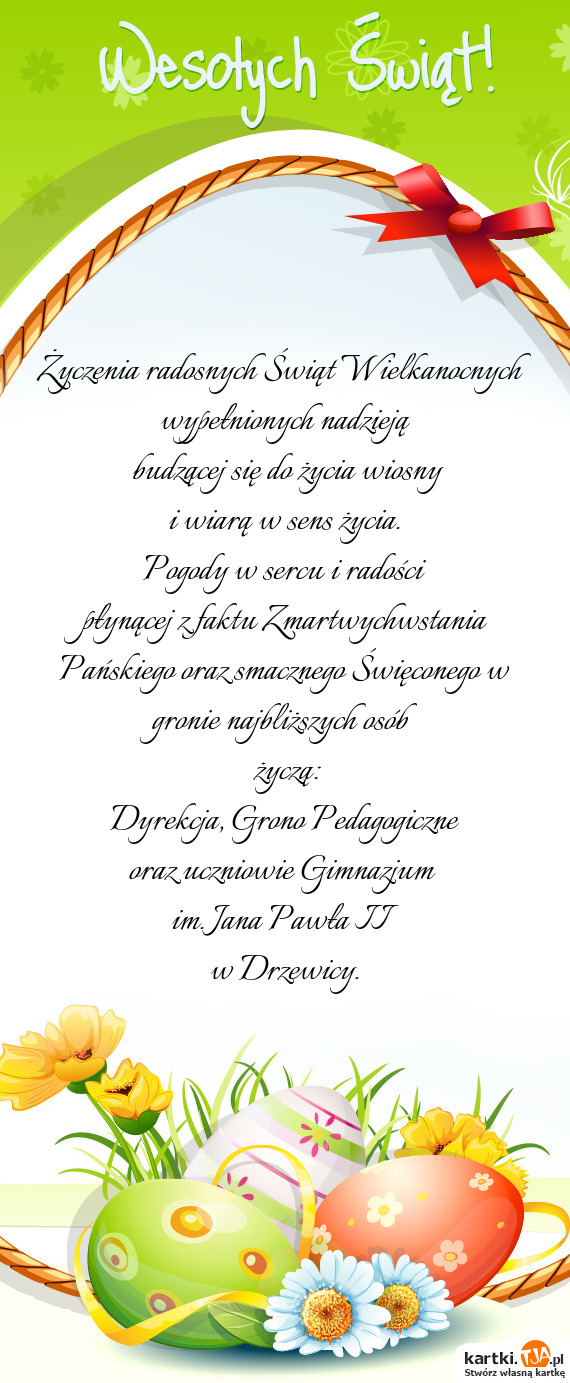 Wesołych Świąt!
Życzenia radosnych Świąt Wielkanocnych
wypełnionych nadzieją
budzącej się do życia wiosny
i wiarą w sens życia.
Pogody w sercu i radości
płynącej z faktu Zmartwychwstania
Pańskiego oraz smacznego Święconego w
gronie najbliższych osób
życzą:
Dyrekcja, Grono Pedagogiczne
oraz uczniowie Gimnazjum
im. Jana Pawła II
w Drzewicy.
kartki.TJA.pl
Stwórz własną kartkę